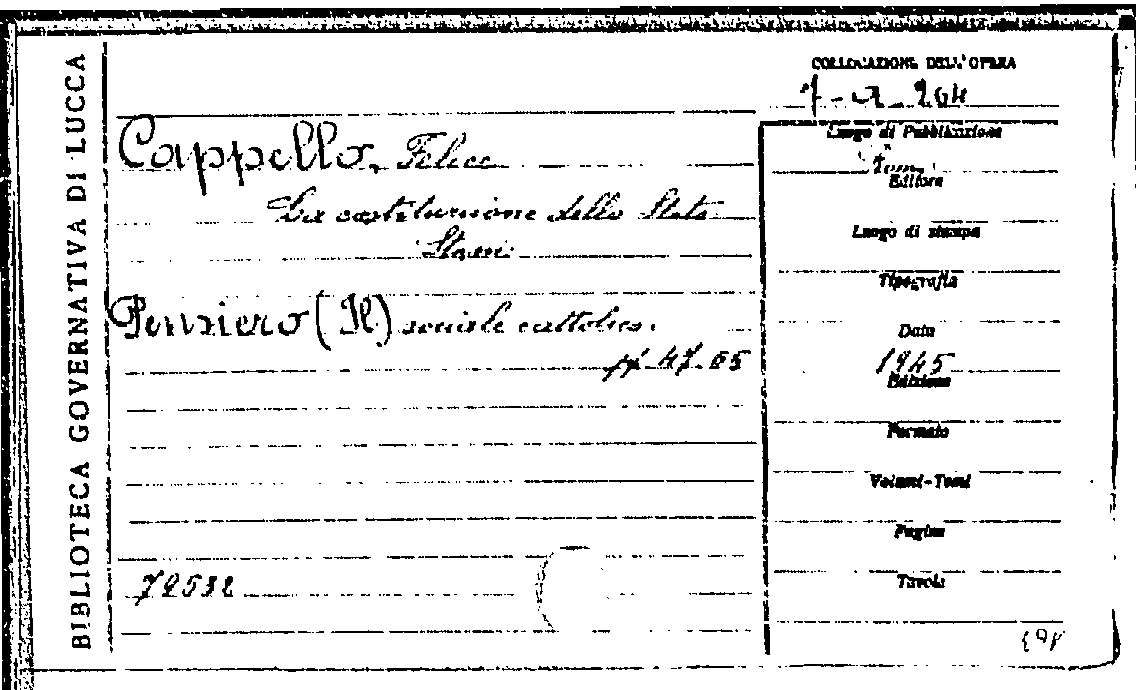 BIBLIOTECA GOVERNATIVA DI LUCCA
COLLOCAZIONE DELL'OPERA
Cappello, Felice
La costituzione dello Stato
Pensiero (Il) sociale cattolico.
pp. 47-65
72532
Luogo di Pubblicazione
Editore
Luogo di stampa
Tipografia
Data
1945
Edizione
Formato
Volumi-Tomi
Pagine
Tavole